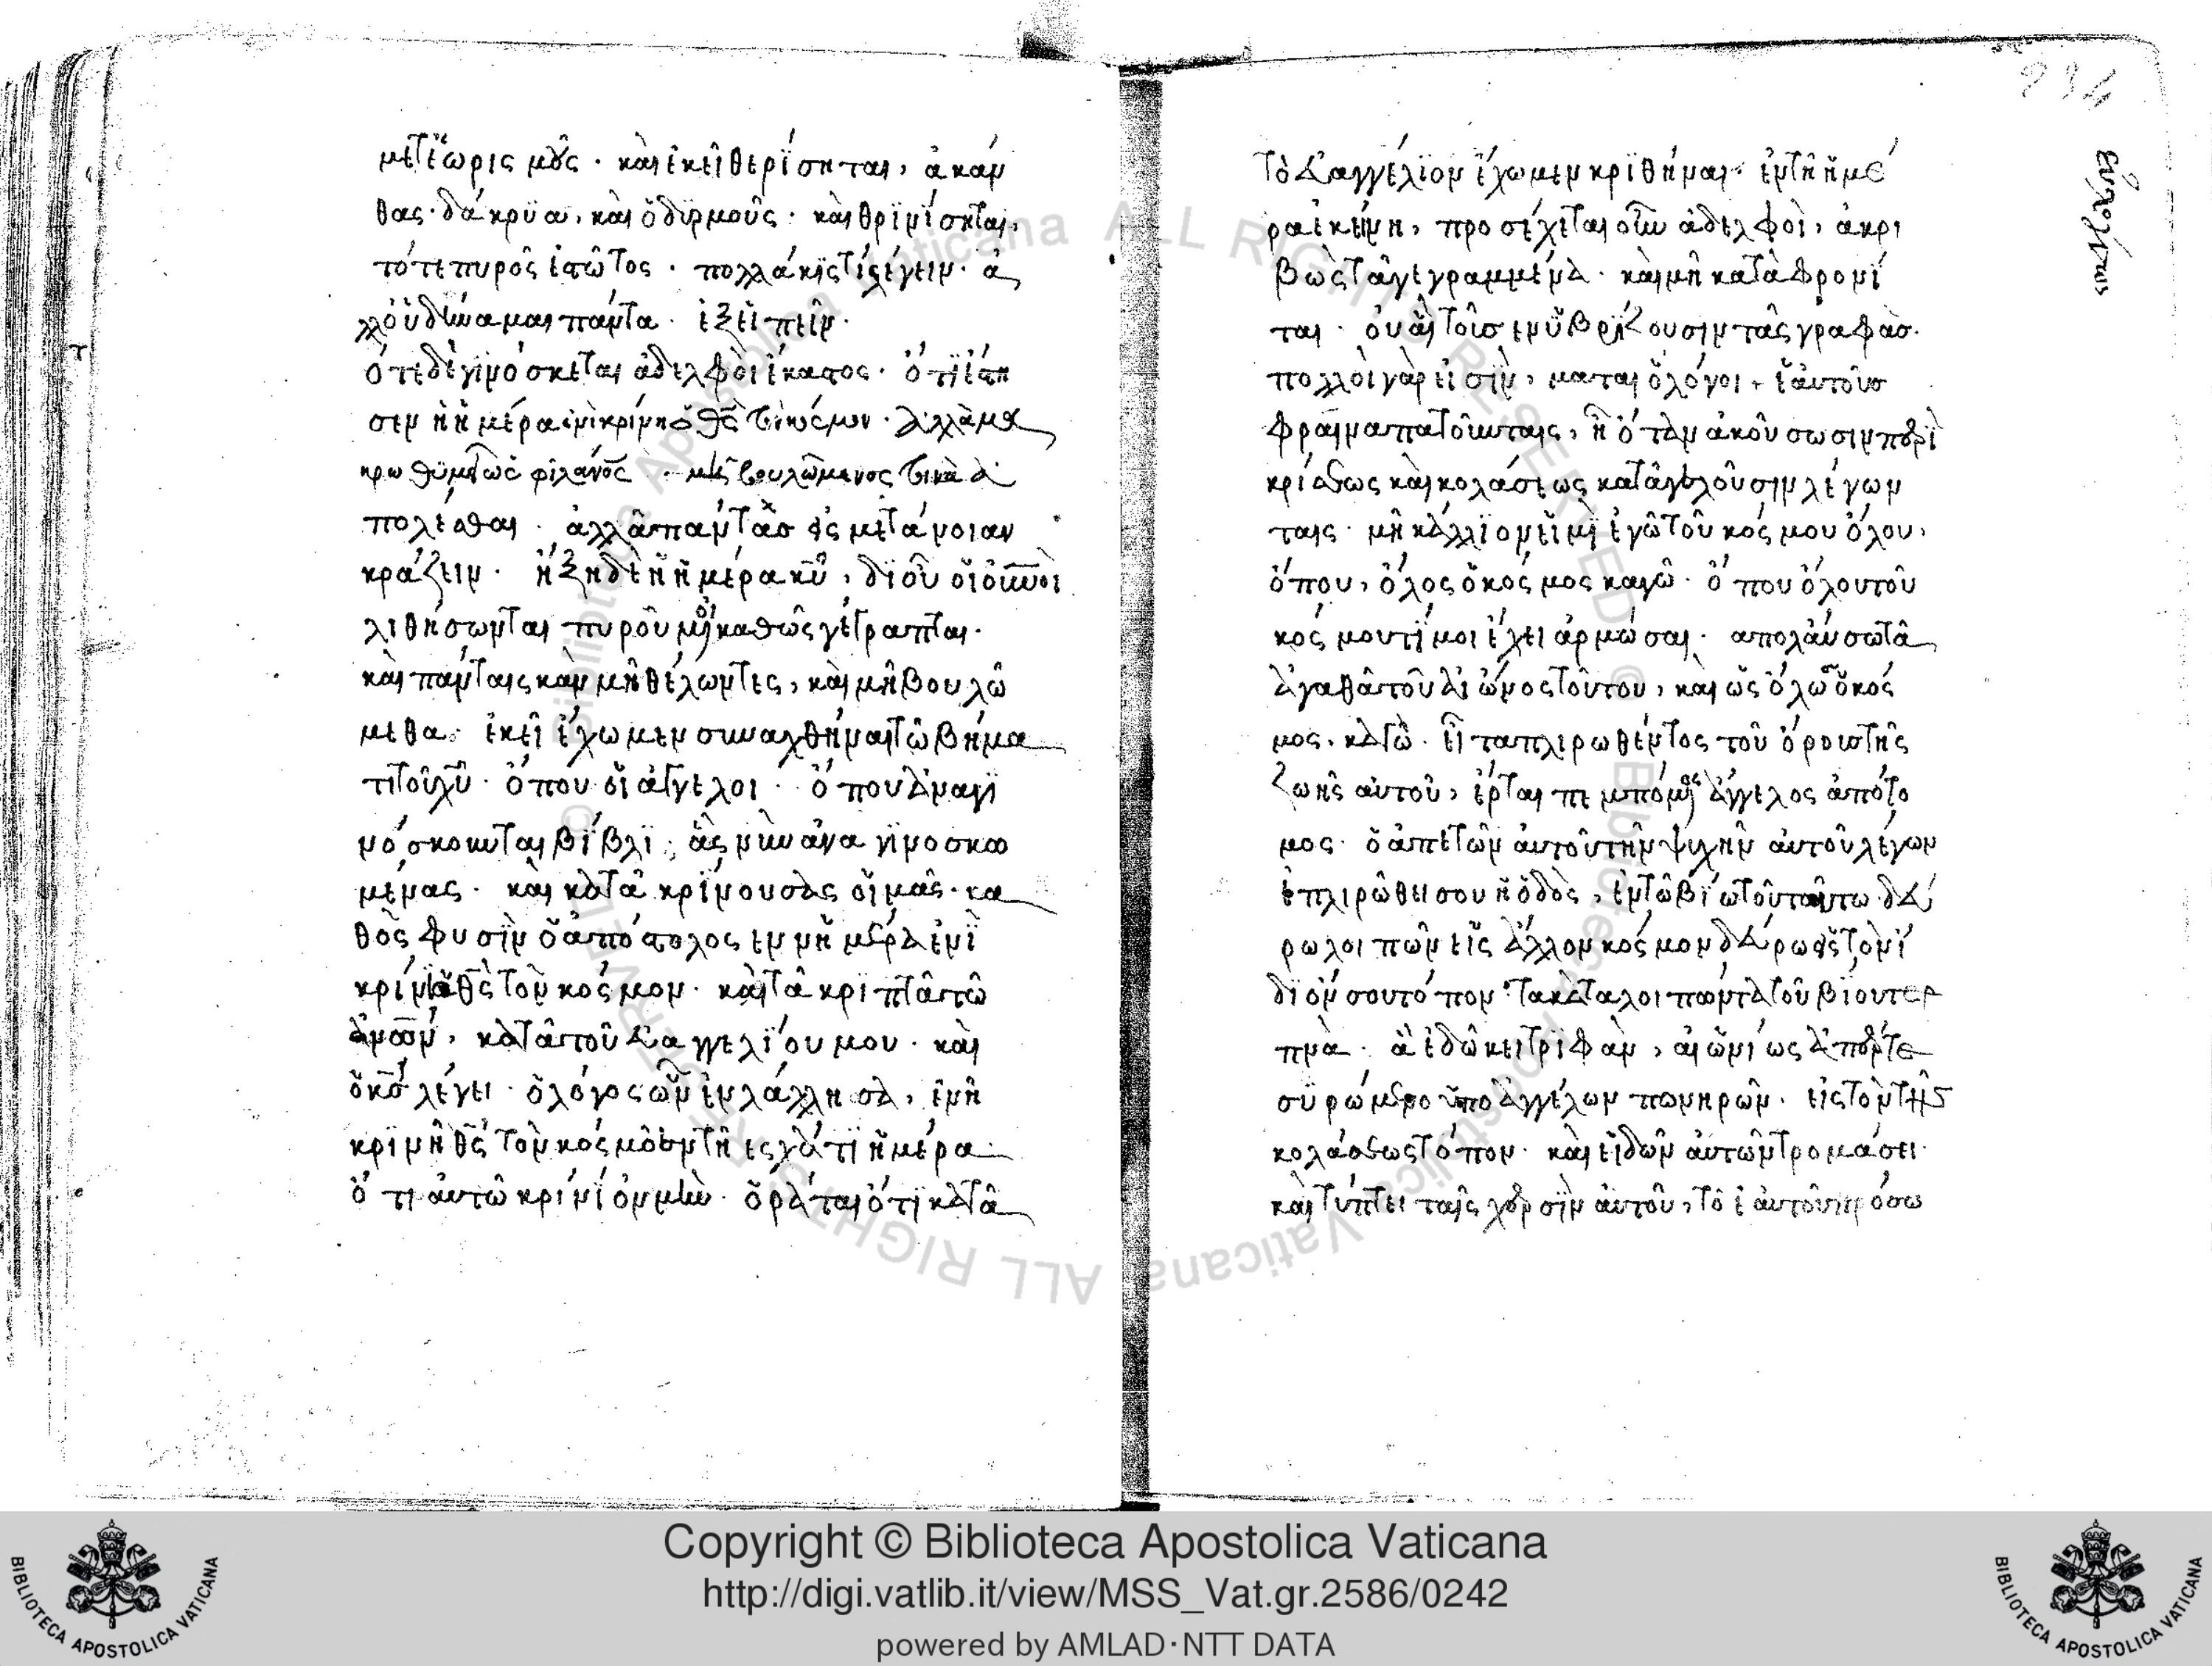 μετεωρισμούς· καὶ ἐκεῖ θερίσηται, ἀκάν
θας· δάκρϋα, καὶ ὀδϋρμοὺς· καὶ θρϊνΐσηται,
τότε πυρὸς ἑστῶτος· πολλάκϊς τίς λέγειν· ἀ
λλ' οὐ δύναμαι πάντα ἐξειπεῖν·
ὅτε δὲ γϊνόσκεται ἀδελφοὶ ἕκαστος· ὅτϊ ἔστη
σεν ἡ ἡμέρα
πολέσθαι· ἀλλὰ πάντας εἰς μετάνοιαν
κράζειν· ἥξη δὲ ἡ ἡμέρα κ̅υ̅, δϊ οὗ οἱ οὐ̅νοὶ
λιθήσωνται πυροῦμενοι καθὼς γέγραπται·
καὶ πάνταις κἂν μὴ θέλωντες, καὶ μὴ βουλώ
μεθα· ἐκεῖ ἔχωμεν συναχθῆναι τῶ βήμα
τι τοῦ χ̅υ̅· ὅπου οἱ ἄγγελοι· ὅπου ἀναγϊ
νόσκουνται βΐβλϊ ἃς νῦν ἀναγϊνοσκω
μένας· καὶ κατακρϊνουσας ϊμᾶς· κα
θὸς φυσῒν ὁ ἀπόστολος ἐν ϊἡμέρα ἐνῒ
κρίνει ὁ θ̅ς̅ τὸν κόσμον· καὶ τὰ κριπτὰ τῶ
ἀν̅ω̅ν, κατὰ τοῦ εὐαγγελΐου μου· καὶ
ὁ κ̅ς̅ λέγει· ὁ λόγος ὧν ἐνλάλλησα, ἐνῆ
κρϊνῆ θ̅ς̅ τὸν κόσμον ἐν τῆ ἐσχάτϊ ἡμέρα
ὅτι αὐτῶ κρίνϊ ὀνμὶν· ὁρᾶται ὅτϊ κατὰ
τὸ εὐαγγέλϊον ἔχωμεν κρϊθῆναι· ἐν τῆ ἡμέ
ρα ἐκείνη, προσέχεται οὖν ἀδελφοὶ, ἀκρι
βῶς τὰ γεγραμμένα· καὶ μὴ καταφρονΐ
ται· οὐαὶ τοῖς ἐνϋβρϊζουσιν τὰς γραφὰς·
πολλοὶ γὰρ εἰσὶν, ματαιολόγοι, ἑαυτοὺς
φραϊναπατοῦνταις, ἢ ὅταν ἀκούσωσιν περὶ
κρίσεως καὶ κολάσεως καταγελοῦσιν λέγων
ταις· μὴ κάλλϊον εἰμὶ ἐγὼ τοῦ κόσμου ὅλου,
ὅπου, ὅλος ὁ κόσμος καγὼ· ὅπου ὅλου τοῦ
κόσμου τϊ μοι ἔχει ἁρμώσαι· απολάυσω τὰ
ἀγαθὰ τοῦ αἰῶνος τοῦτου, καὶ ὡς ὅλως ὁ κόσ
μος, καγὼ· εἶτα πλιρωθέντος τοῦ ὅρου τῆς
ζωῆς αὐτοῦ, ἔρται πεμπόμενος ἄγγελος ἀπότο
μος· ὁ ἀπετῶν αὐτοῦ τὴν ψυχὴν αὐτοῦ λέγων
ἐπλιρώθει σου ἡ ὁδὸς, ἐν τῶ βΐω τοῦτω δεῦ
ρω λοιπὼν εἰς ἄλλον κόσμον δεῦρω εἰς τὸν ΐ
δϊόν σου τόπον· τα καταλοιπῶντα τοῦ βίου τερ
πνὰ· ἃ ἐδώκει τρϊφὰν, αἰωνΐως ἀπέρτε
συρώμενος ὑπο ἀγγέλων πωνηρῶν· εἰς τὸν τῆς
κολάσεως τόπον· καὶ εἰδὼν αὐτὼν τρομάσει·
καὶ τύπτει ταῖς χερσὶν αὐτοῦ, τὸ ἑαυτοῦ πρόσω
Copyright © Biblioteca Apostolica Vaticana
http://digi.vatlib.it/view/MSS_Vat.gr.2586/0242
powered by AMLAD·NTT DATA
BIBLIOTECA APOSTOLICA VATICANA
BIBLIOTECA APOSTOLICA VATICANA